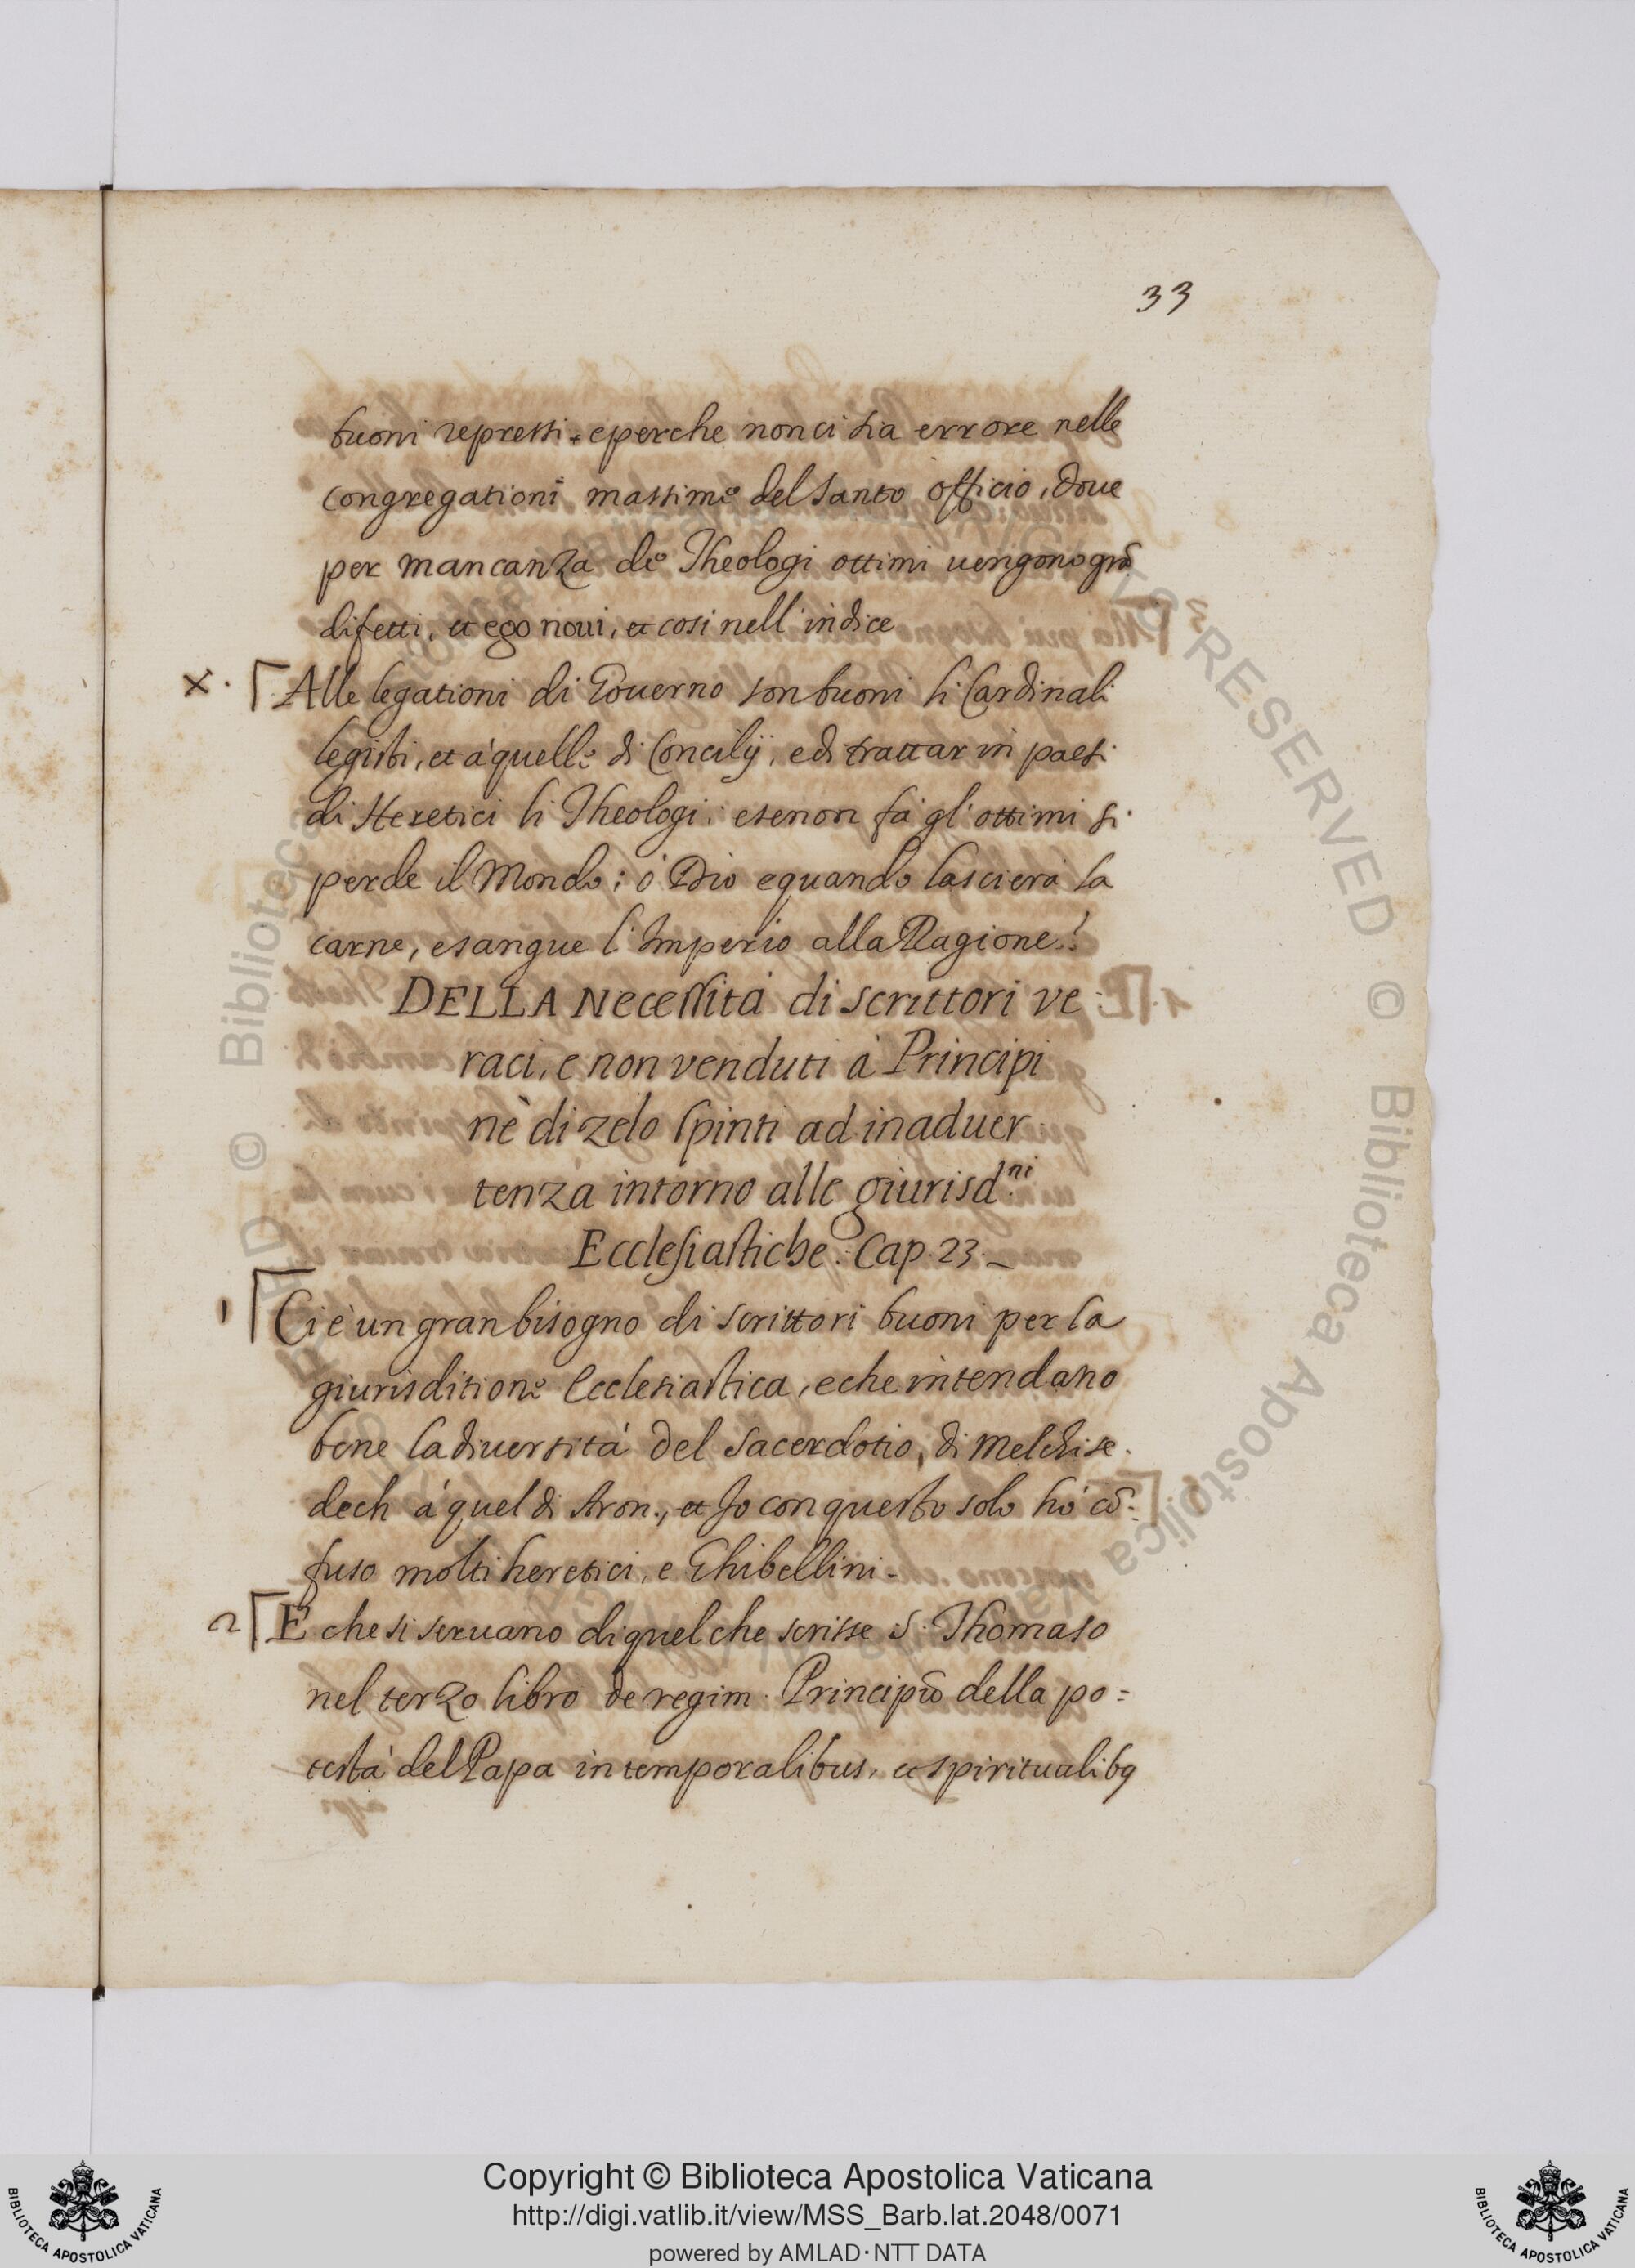 33
buoni repressi. e perche non ci sia errore nelle
congregationi massime del santo officio, doue
per mancanza de Theologi ottimi uengono grā
difetti, et ego noui, et cosi nell' indice
x. Alle legationi di Gouerno son buoni li Cardinali
legisti, et à quelle di Concilij, e di trattar in paesi
di Heretici li Theologi: e se non fà gl' ottimi si
perde il Mondo; ò Dio e quando lascierà la
carne, e sangue l' Imperio alla Ragione!
DELLA Necessità di scrittori ve
raci, e non venduti à Principi
nè di zelo spinti ad inaduer
tenza intorno alle giurisd.ni
Ecclesiastiche. Cap. 23.
1 Ci è un gran bisogno di scrittori buoni per la
giurisditione Ecclesiastica, e che intendano
bene la diuersità del Sacerdotio, di Melchise.
dech à quel di Aron., et Io con questo solo hò cō:
fuso molti heretici, e Ghibellini.
2 E che si seruano di quel che scrisse S. Thomaso
nel terzo libro de regim. Principū della po=
testà del Papa in temporalibus, et spiritualibq
BIBLIOTECA APOSTOLICA VATICANA
Copyright © Biblioteca Apostolica Vaticana
http://digi.vatlib.it/view/MSS_Barb.lat.2048/0071
powered by AMLAD·NTT DATA
BIBLIOTECA APOSTOLICA VATICANA